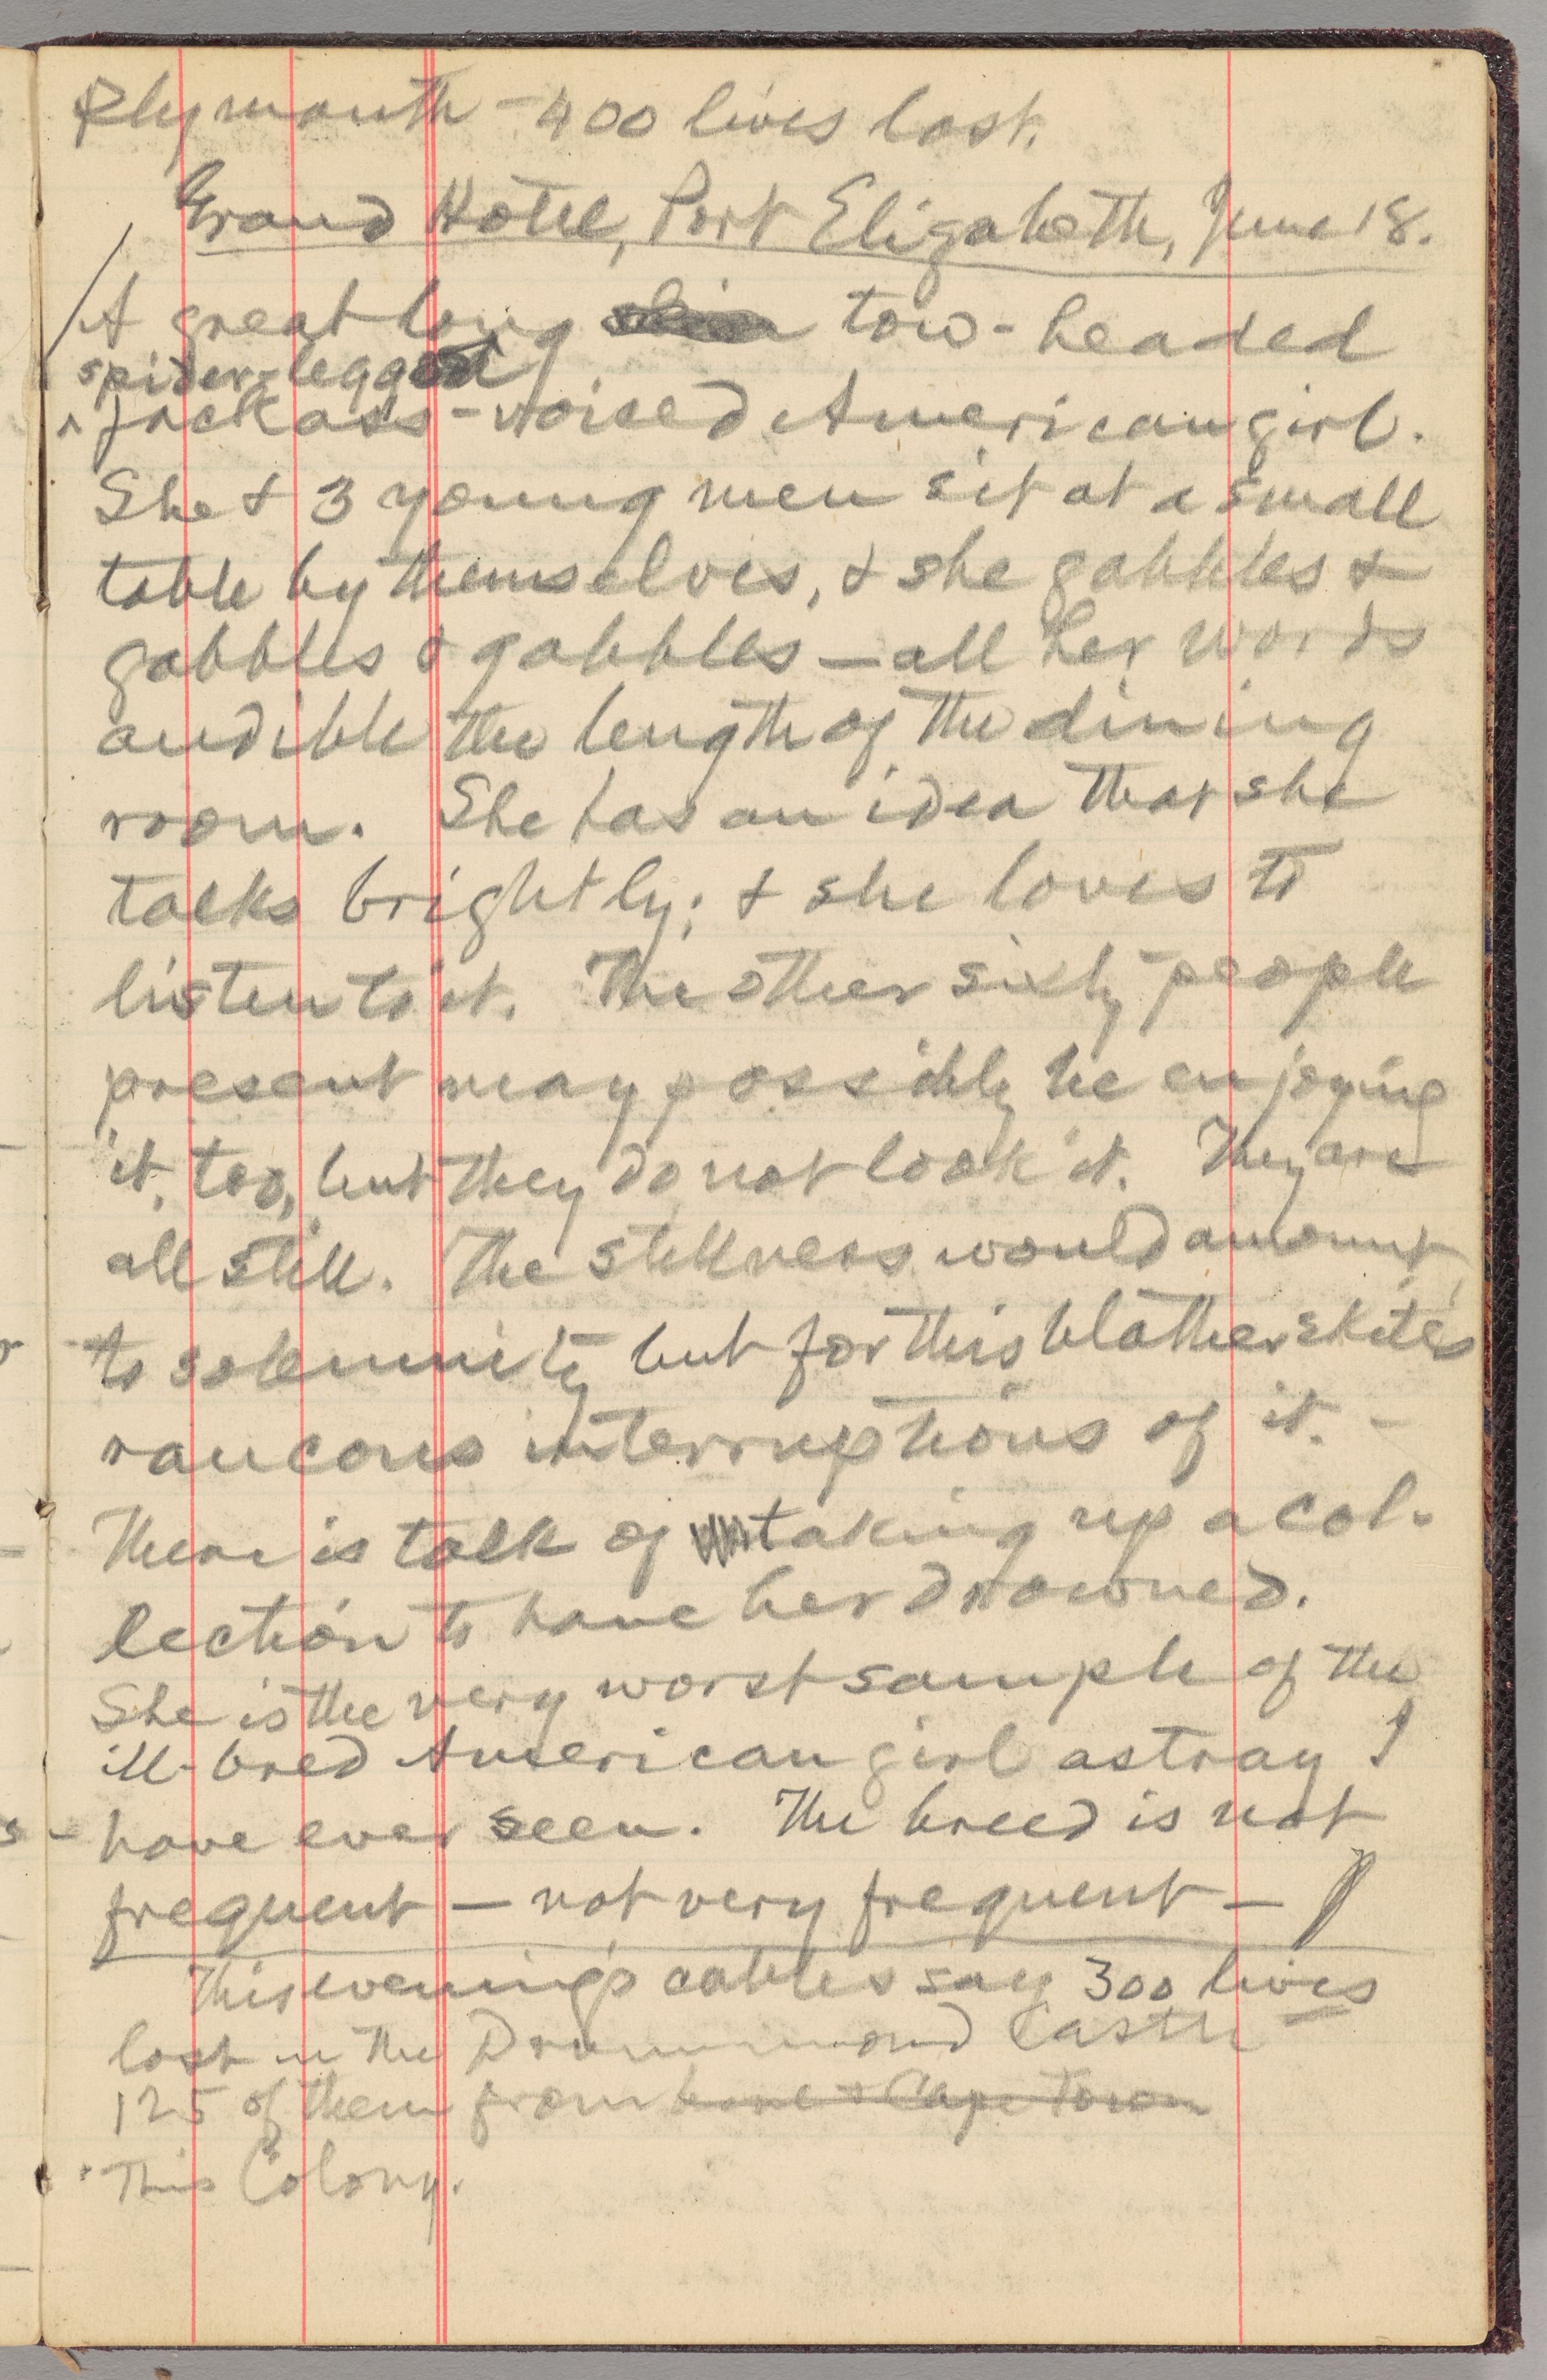 Plymouth – 400 lives lost.
Grand Hotel, Port Elizabeth, June 18.
A great long tow-headed
spider-legged
^ jackass-voiced American girl.
She & 3 young men sit at a small
table by themselves, & she gabbles &
gabbles & gabbles – all her words
audible the length of the dining
room. She has an idea that she
talks brightly; & she loves to
listen to it. The other sixty people
present may possibly be enjoying
it, too, but they do not look it. They are
all still. The stillness would amount
to solemnity but for this blatherskite's
raucous interruptions of it. –
There is talk of taking up a col-
lection to have her drowned.
She is the very worst sample of the
ill-bred American girl astray I
have ever seen. The breed is not
frequent – not very frequent –
This evening's cables say 300 lives
lost in the Drummond Castle –
125 of them from here & Cape Town
this Colony.